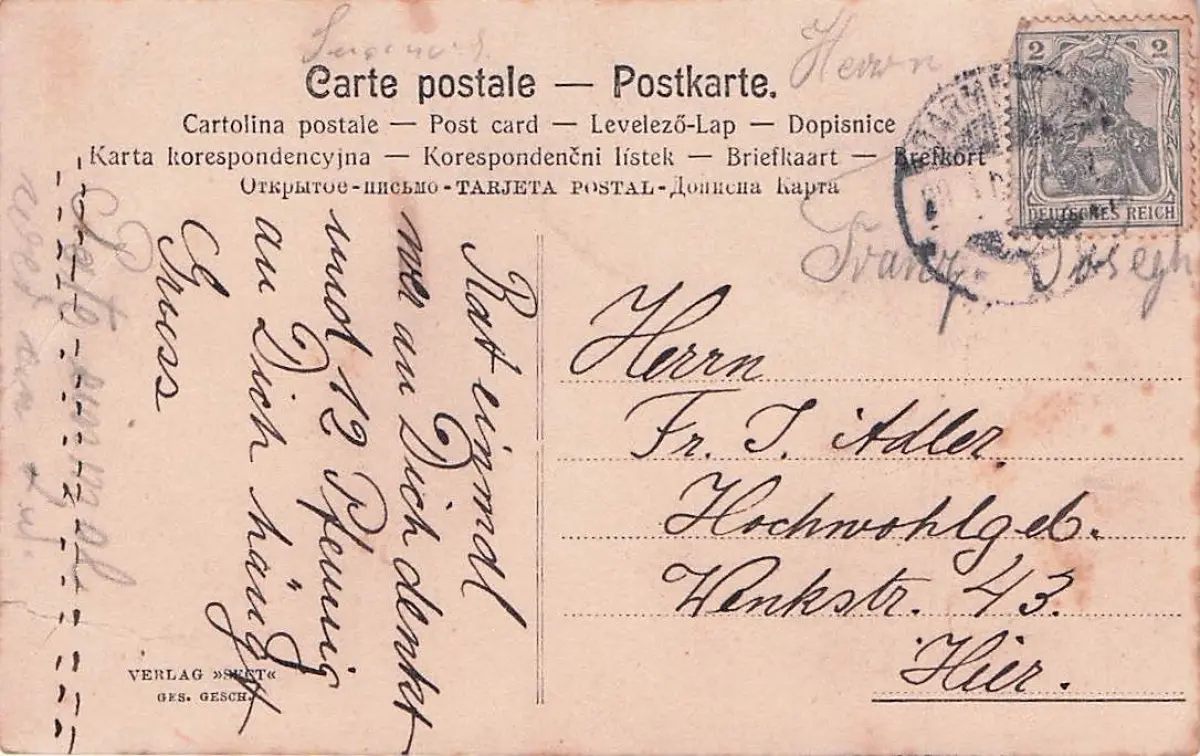 Carte postale — Postkarte.
Cartolina postale — Post card — Levelező-Lap — Dopisnice
Karta korespondencyjna — Korespondenční lístek — Briefkaart — Brefkort
Открытое-письмо-TARJETA POSTAL-Дописна Карта
Herrn
Franz Joseph
2 2
DEUTSCHES REICH
Rat einmal
wer an Dich denkt
und 12 Pfennig
an Dich hängt
Gruss
Herrn
Fr. J. Adler
Hochwohlgeb.
Wenkstr. 43.
Hier.
VERLAG »SECT«
GES. GESCH.